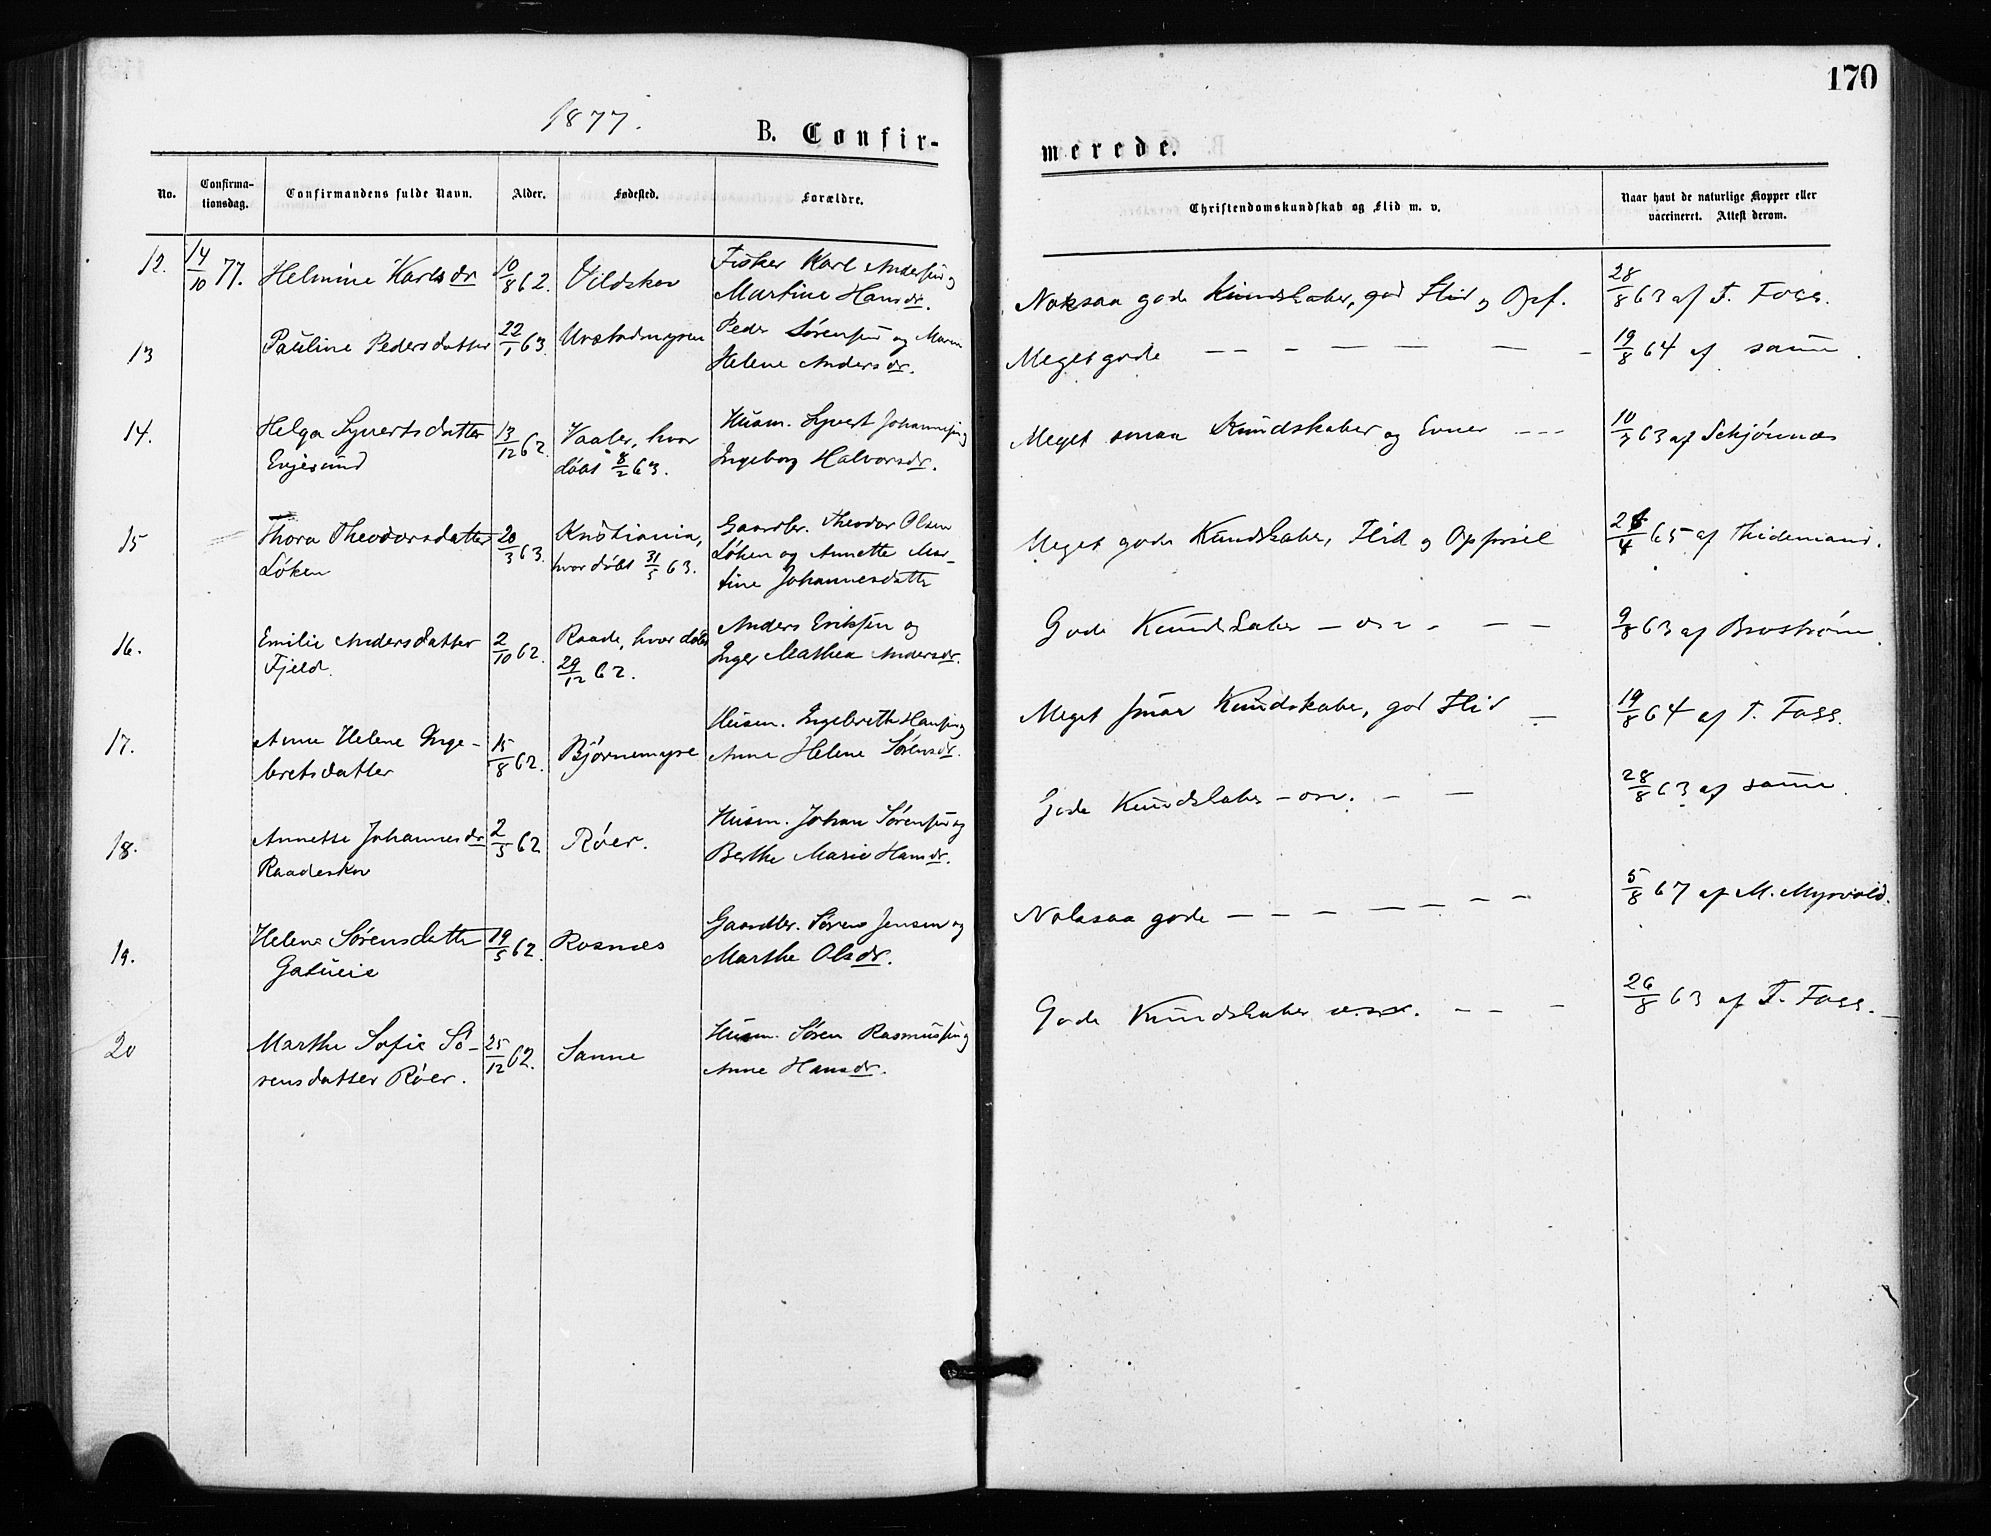 170
1877.
B. Confir-
merede.
No.
Confirma-
tionsdag.
Confirmandens fulde Navn.
Alder.
Fødested.
Forældre.
Christendomskundskab og Flid m. v.
Naar havt de naturlige Kopper eller
vaccineret. Attest derom.
12. 14/10 77. Helmine Karlsdr 10/8 62. Vildskov
Fisker Karl Andersen og
Martine Hansdr.
Noksaa gode Kundskaber, god Flid og Opf.
28/8 63 af T. Foss.
13 Pauline Pedersdatter 22/1 63.
Peder Sørensen og Maren
Helene Andersdr.
Meget gode — — — — — — —
19/8 64 af samme.
14. Helga Syvertsdatter
Evjesund
13/12 62.
Vaaler, hvor
døbt 8/2 63.
Husm. Syvert Johannesen og
Ingeborg Halvorsdr.
Meget smaa Kundskaber og Evner — — —
10/7 63 af Schjønnes
15 Thora Theodorsdatter
Løken
20/3 63.
Kristiania,
hvor døbt 31/5 63.
Gaardbr. Theodor Olsen
Løken og Annette Mar-
tine Johannesdatter
Meget gode Kundskaber, Flid og Opførsel
4 65 af Thidemand.
16. Emilie Andersdatter
Fjeld.
2/10 62.
Raade, hvor døbt
29/12 62.
Anders Eriksen og
Inger Mathea Andersdr.
Gode Kundskaber — osv. — — —
9/8 63 af Brostrøm.
17. Anne Helene Inge-
bretsdatter
15/8 62.
Bjørnemyre
Husm. Ingebreth Hansen og
Anne Helene Sørensdr.
Meget smaa Kundskaber, god Flid —
19/8 64 af T. Foss.
18. Annette Johannesdr
Raadeskov
2/5 62
Røer.
Husm. Johan Sørensen og
Berthe Marie Hansdr.
Gode Kundskaber — osv. — —
28/8 63 af samme.
19. Helene Sørensdatter
19/5 62.
Rosnæs
Gaardbr. Søren Jensen og
Marthe Olsdr.
Noksaa gode — — — — — — —
5/8 67 af M. Myrvold.
20 Marthe Sofie Sø-
rensdatter Røer.
25/12 62.
Sanne
Husm. Søren Rasmussen og
Anne Hansdr.
Gode Kundskaber osv. — — —
26/8 63 af T. Foss.